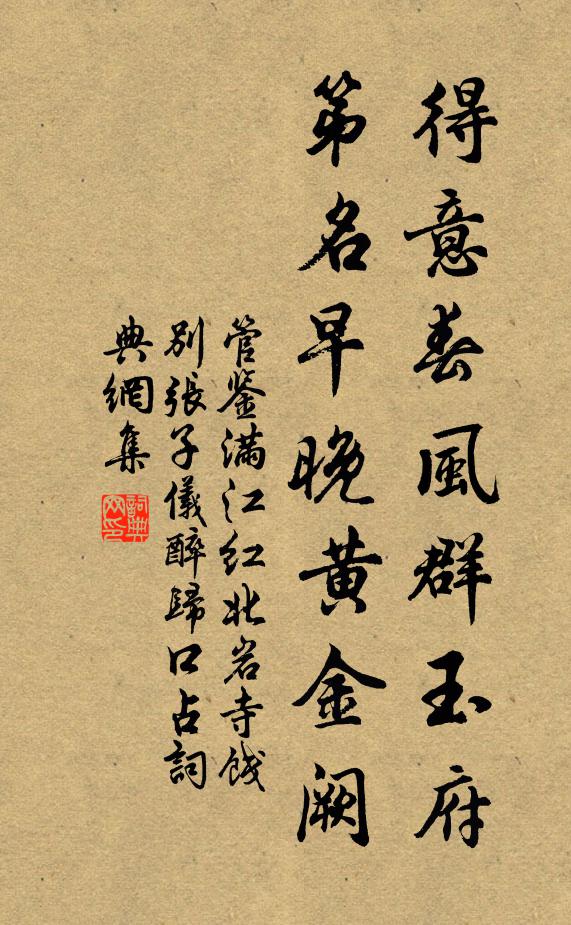 得意春風群玉府
第名早晚黄金闕
管鉴滿江红北岩寺餞
别張子儀醉歸口占詞
典網集
詞典网印